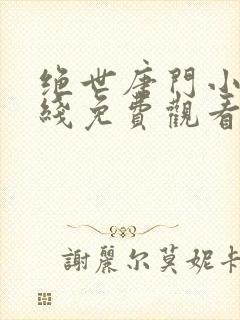 绝世唐門小
綫免費觀看
謝麗尔莫妮卡